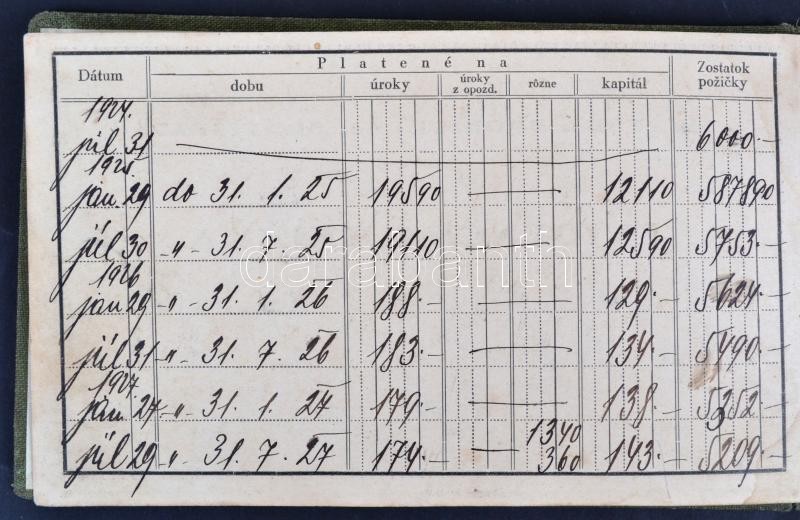 Platené na
Dátum dobu úroky úroky z opozd. rôzne kapitál Zostatok požičky
1924.
júl 31 6000.-
1925.
jan. 29 do 31. 1. 25 195 90 121 10 5878 90
júl 30 " - 31. 7. 25 191 10 125 90 5753.-
1926
jan 29 " - 31. 1. 26 188.- 129.- 5624.-
júl 31 " - 31. 7. 26 183.- 134.- 5490.-
1927.
jan. 27 " - 31. 1. 27 179.- 138.- 5352.-
13 40
júl 29 " - 31. 7. 27 174.- 3 60 143.- 5209.-
darabanth